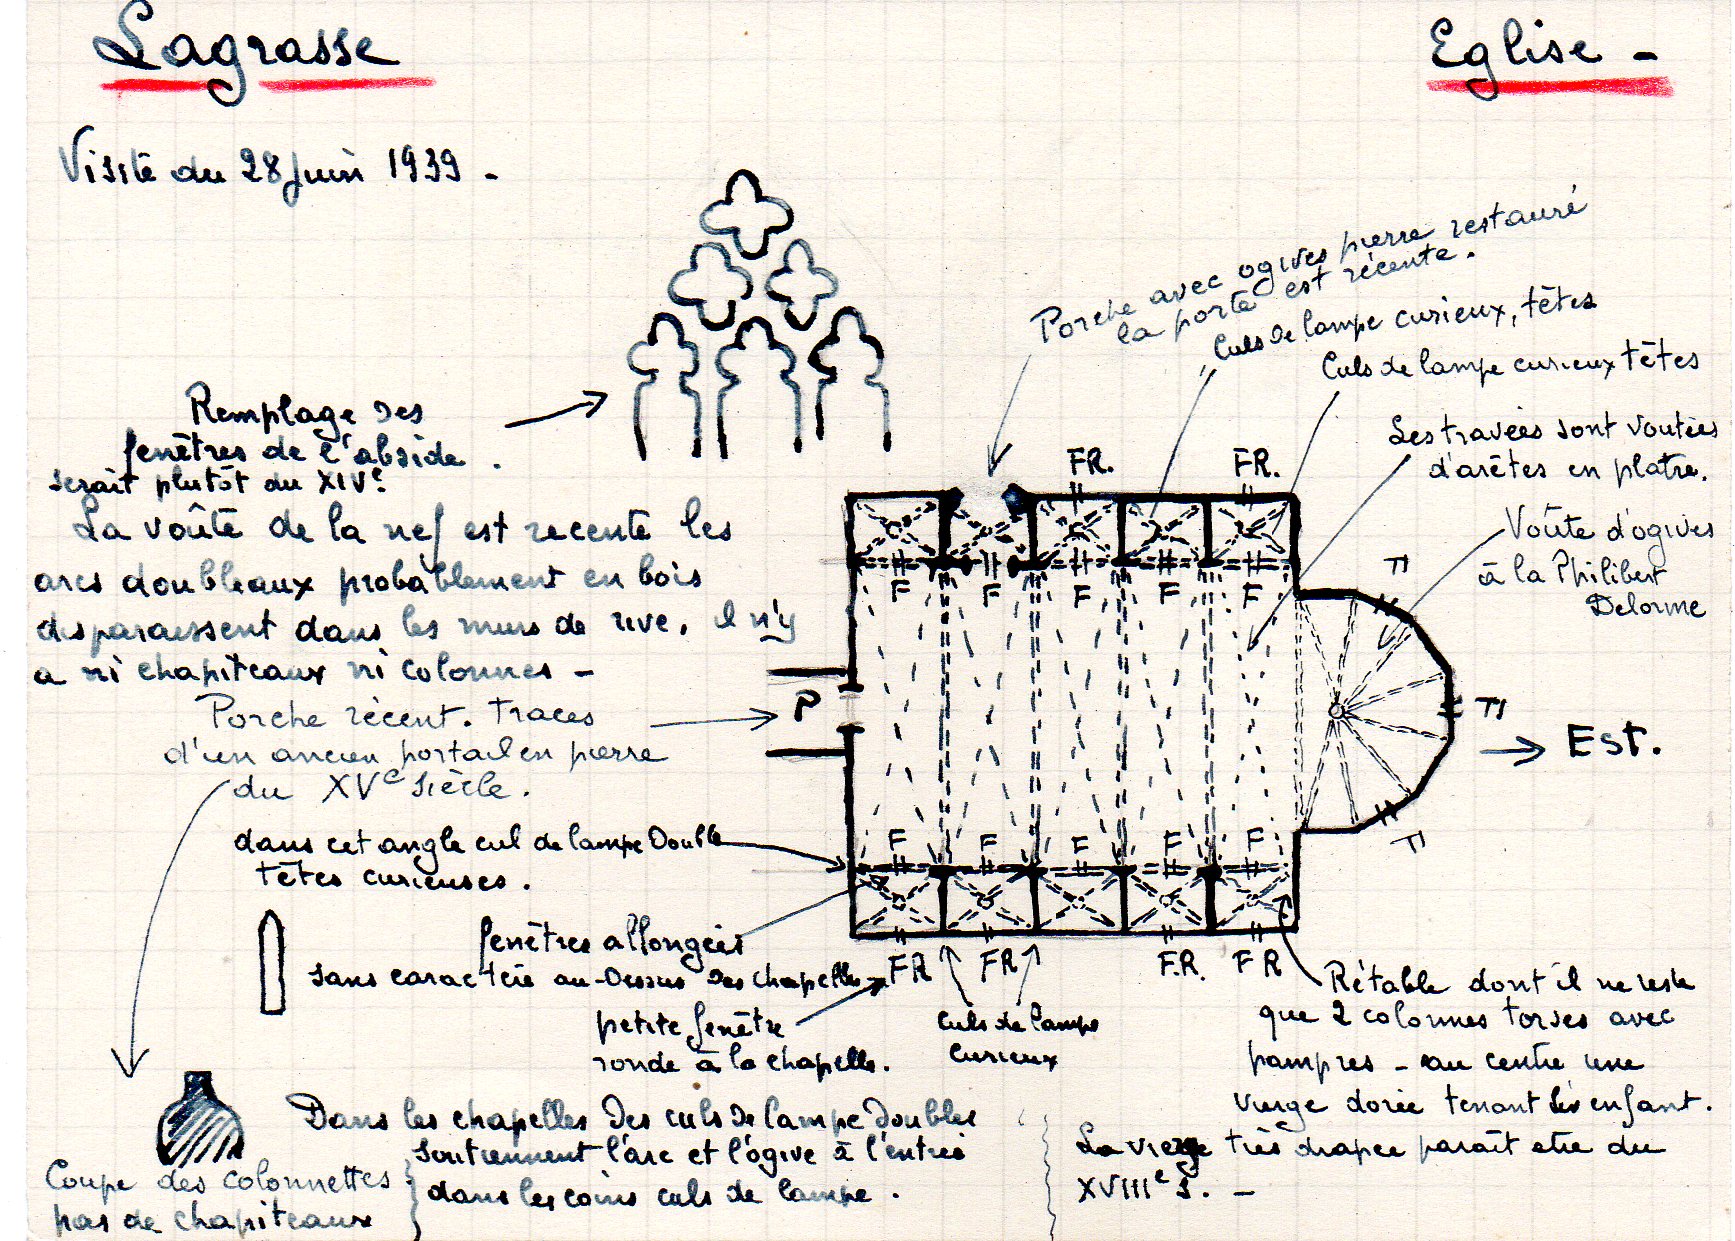 Lagrasse
Eglise -
Visite du 28 Juin 1939 -
Porche avec ogives pierre restauré
la porte est récente.
Culs de lampe curieux, têtes
Culs de lampe curieux têtes
Les travées sont voutées
d'arêtes en platre.
Voûte d'ogives
à la Philibert
Delorme
Remplage des
fenêtres de l'abside.
serait plutôt du XIVe.
La voûte de la nef est recente les
arcs doubleaux probablement en bois
disparaissent dans les murs de rive, il n'y
a ni chapiteaux ni colonnes -
Porche récent. Traces
d'un ancien portail en pierre
du XVe siècle.
dans cet angle cul de lampe Double
têtes curieuses.
fenêtres allongées
sans caractère au-dessus des chapelles
petite fenêtre
ronde à la chapelle.
FR.
FR.
F
F
F
F
F
P
F
F
F
F
F
FR
FR
F.R.
FR
Est.
Culs de lampe
curieux
Rétable dont il ne reste
que 2 colonnes torses avec
pampres - au centre une
vierge dorée tenant enfant.
La vierge très drapée paraît etre du
XVIIIe s. -
Dans les chapelles des culs de lampe doubles
soutiennent l'arc et l'ogive à l'entrée
dans les coins culs de lampe.
Coupe des colonnettes
pas de chapiteaux